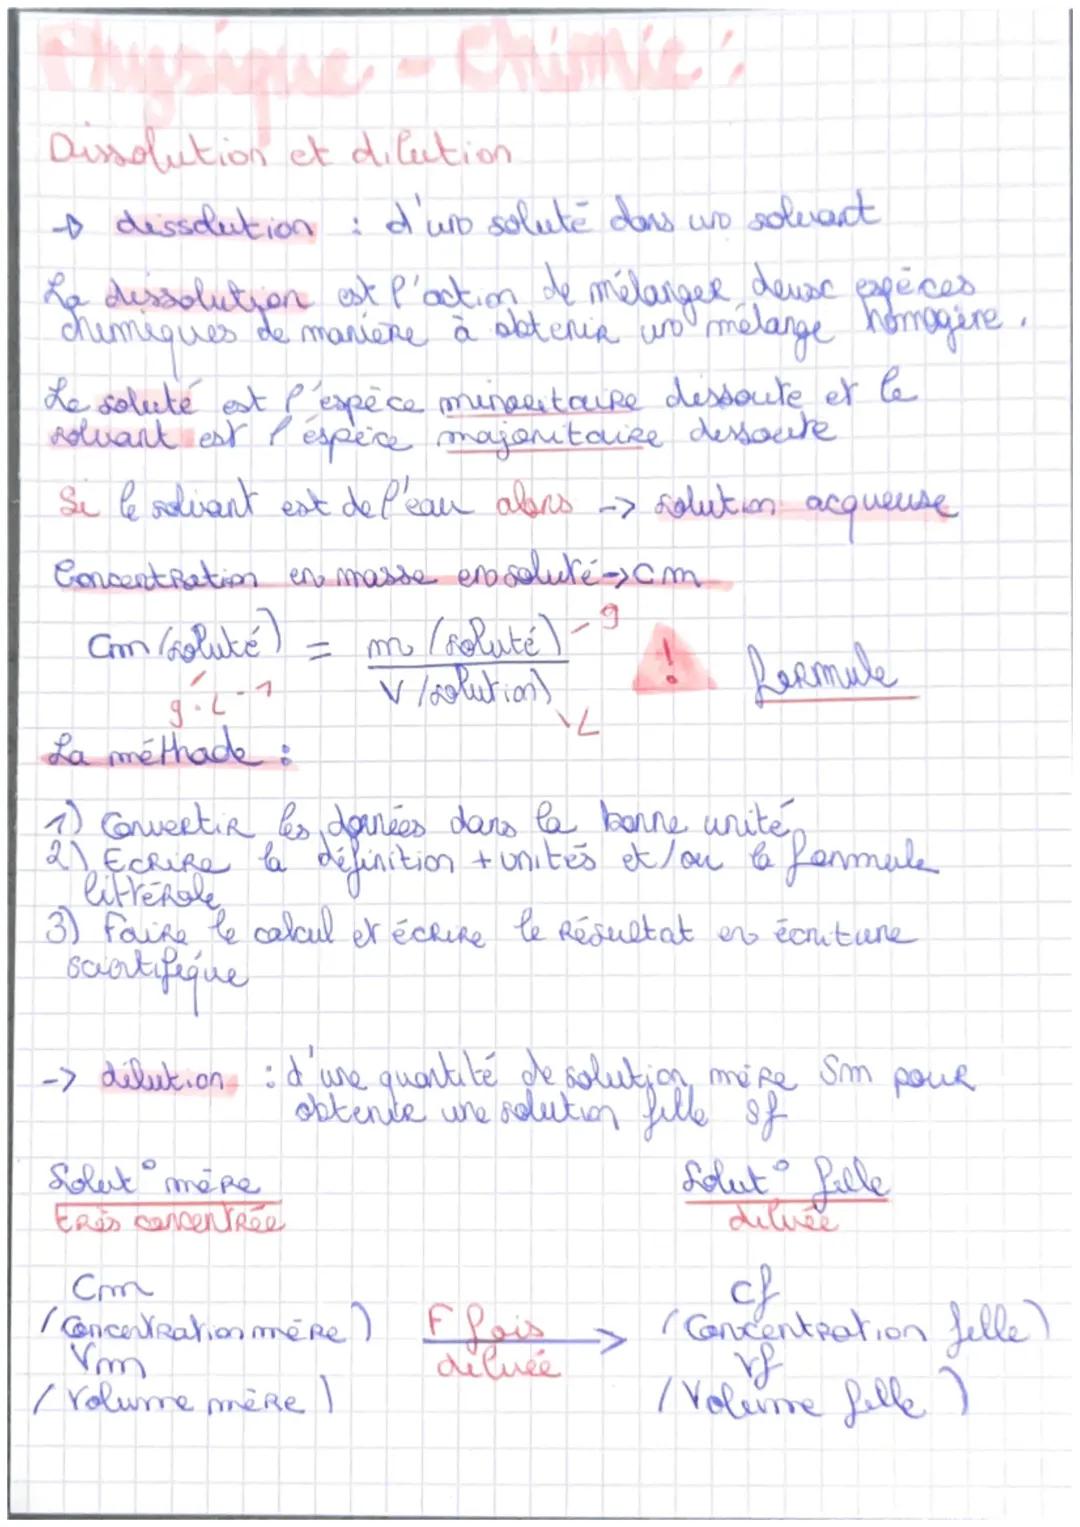 Physique - Chimie :
Dissolution et dilution
→ dissolution : d'un soluté dans un solvant
La dissolution est l'action de mélanger deux espèces
chimiques de manière à obtenir un mélange homogène.
Le soluté est l'espèce minoritaire dissoute et le
solvant est l'espèce majoritaire dissoute
Si le solvant est de l'eau alors -> solution acqueuse
Concentration en masse en soluté -> Cm
Cm (soluté) = m (soluté) - g
g.L-1
V (solution)
L
! formule
La méthode :
1) Convertir les données dans la bonne unité
2) Ecrire la définition + unités et/ou la formule
littérale
3) Faire le calcul et écrire le résultat en écriture
scientifique
-> dilution : d'une quantité de solution mère Sm pour
obtenir une solution fille Sf
Solut° mère
très concentrée
Solut° fille
diluée
Cm
(Concentration mère)
Vm
(Volume mère)
F fois
diluée
Cf
(Concentration fille)
Vf
(Volume fille)